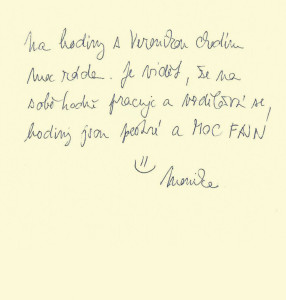 Na hodiny s Veronikou chodím
moc ráda. Je vidět, že na
sobě hodně pracuje a vzdělává se,
hodiny jsou pestré a MOC FAJN
Monika